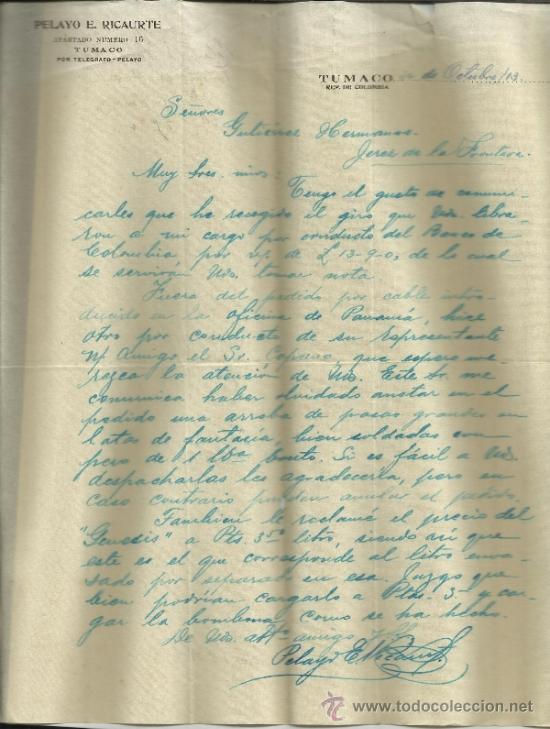 PELAYO E. RICAURTE
APARTADO NUMERO 16
TUMACO
POR TELEGRAFO - PELAYO
TUMACO de Octubre/13.
REP. DE COLOMBIA
Señores
Gutiérrez Hermanos.
Jerez de la Frontera.
Muy Sres. mios: Tengo el gusto de comuni-
carles que he recogido el giro que Uds. libra-
ron a mi cargo por conducto del Banco de
Colombia, por de £ 13-9-0, de lo cual
se serviran Uds. tomar nota
Fuera del pedido por cable intro-
ducido en la oficina de Panamá, hice
otro por conducto de su representante
amigo el Sr. que espero me-
rezca la atención de Uds. Este Sr. me
comunica haber olvidado anotar en el
pedido una arroba de pasas grandes en
latas de fantasía, bien soldadas con
peso de 1 bruto. Si es fácil a Uds.
despacharlas les agradecería, pero en
caso contrario pueden anular el pedido.
Tambien le reclamé el precio del
"Genesis" a Pts. litro, siendo así que
este es el que corresponde al litro enva-
sado por separado en esa. Juzgo que
bien podrían cargarlo a Ptas. 3- y car-
gar la bombona, como se ha hecho.
De Uds. amigo
Pelayo E Ricaurte
todocoleccion
www.todocoleccion.net